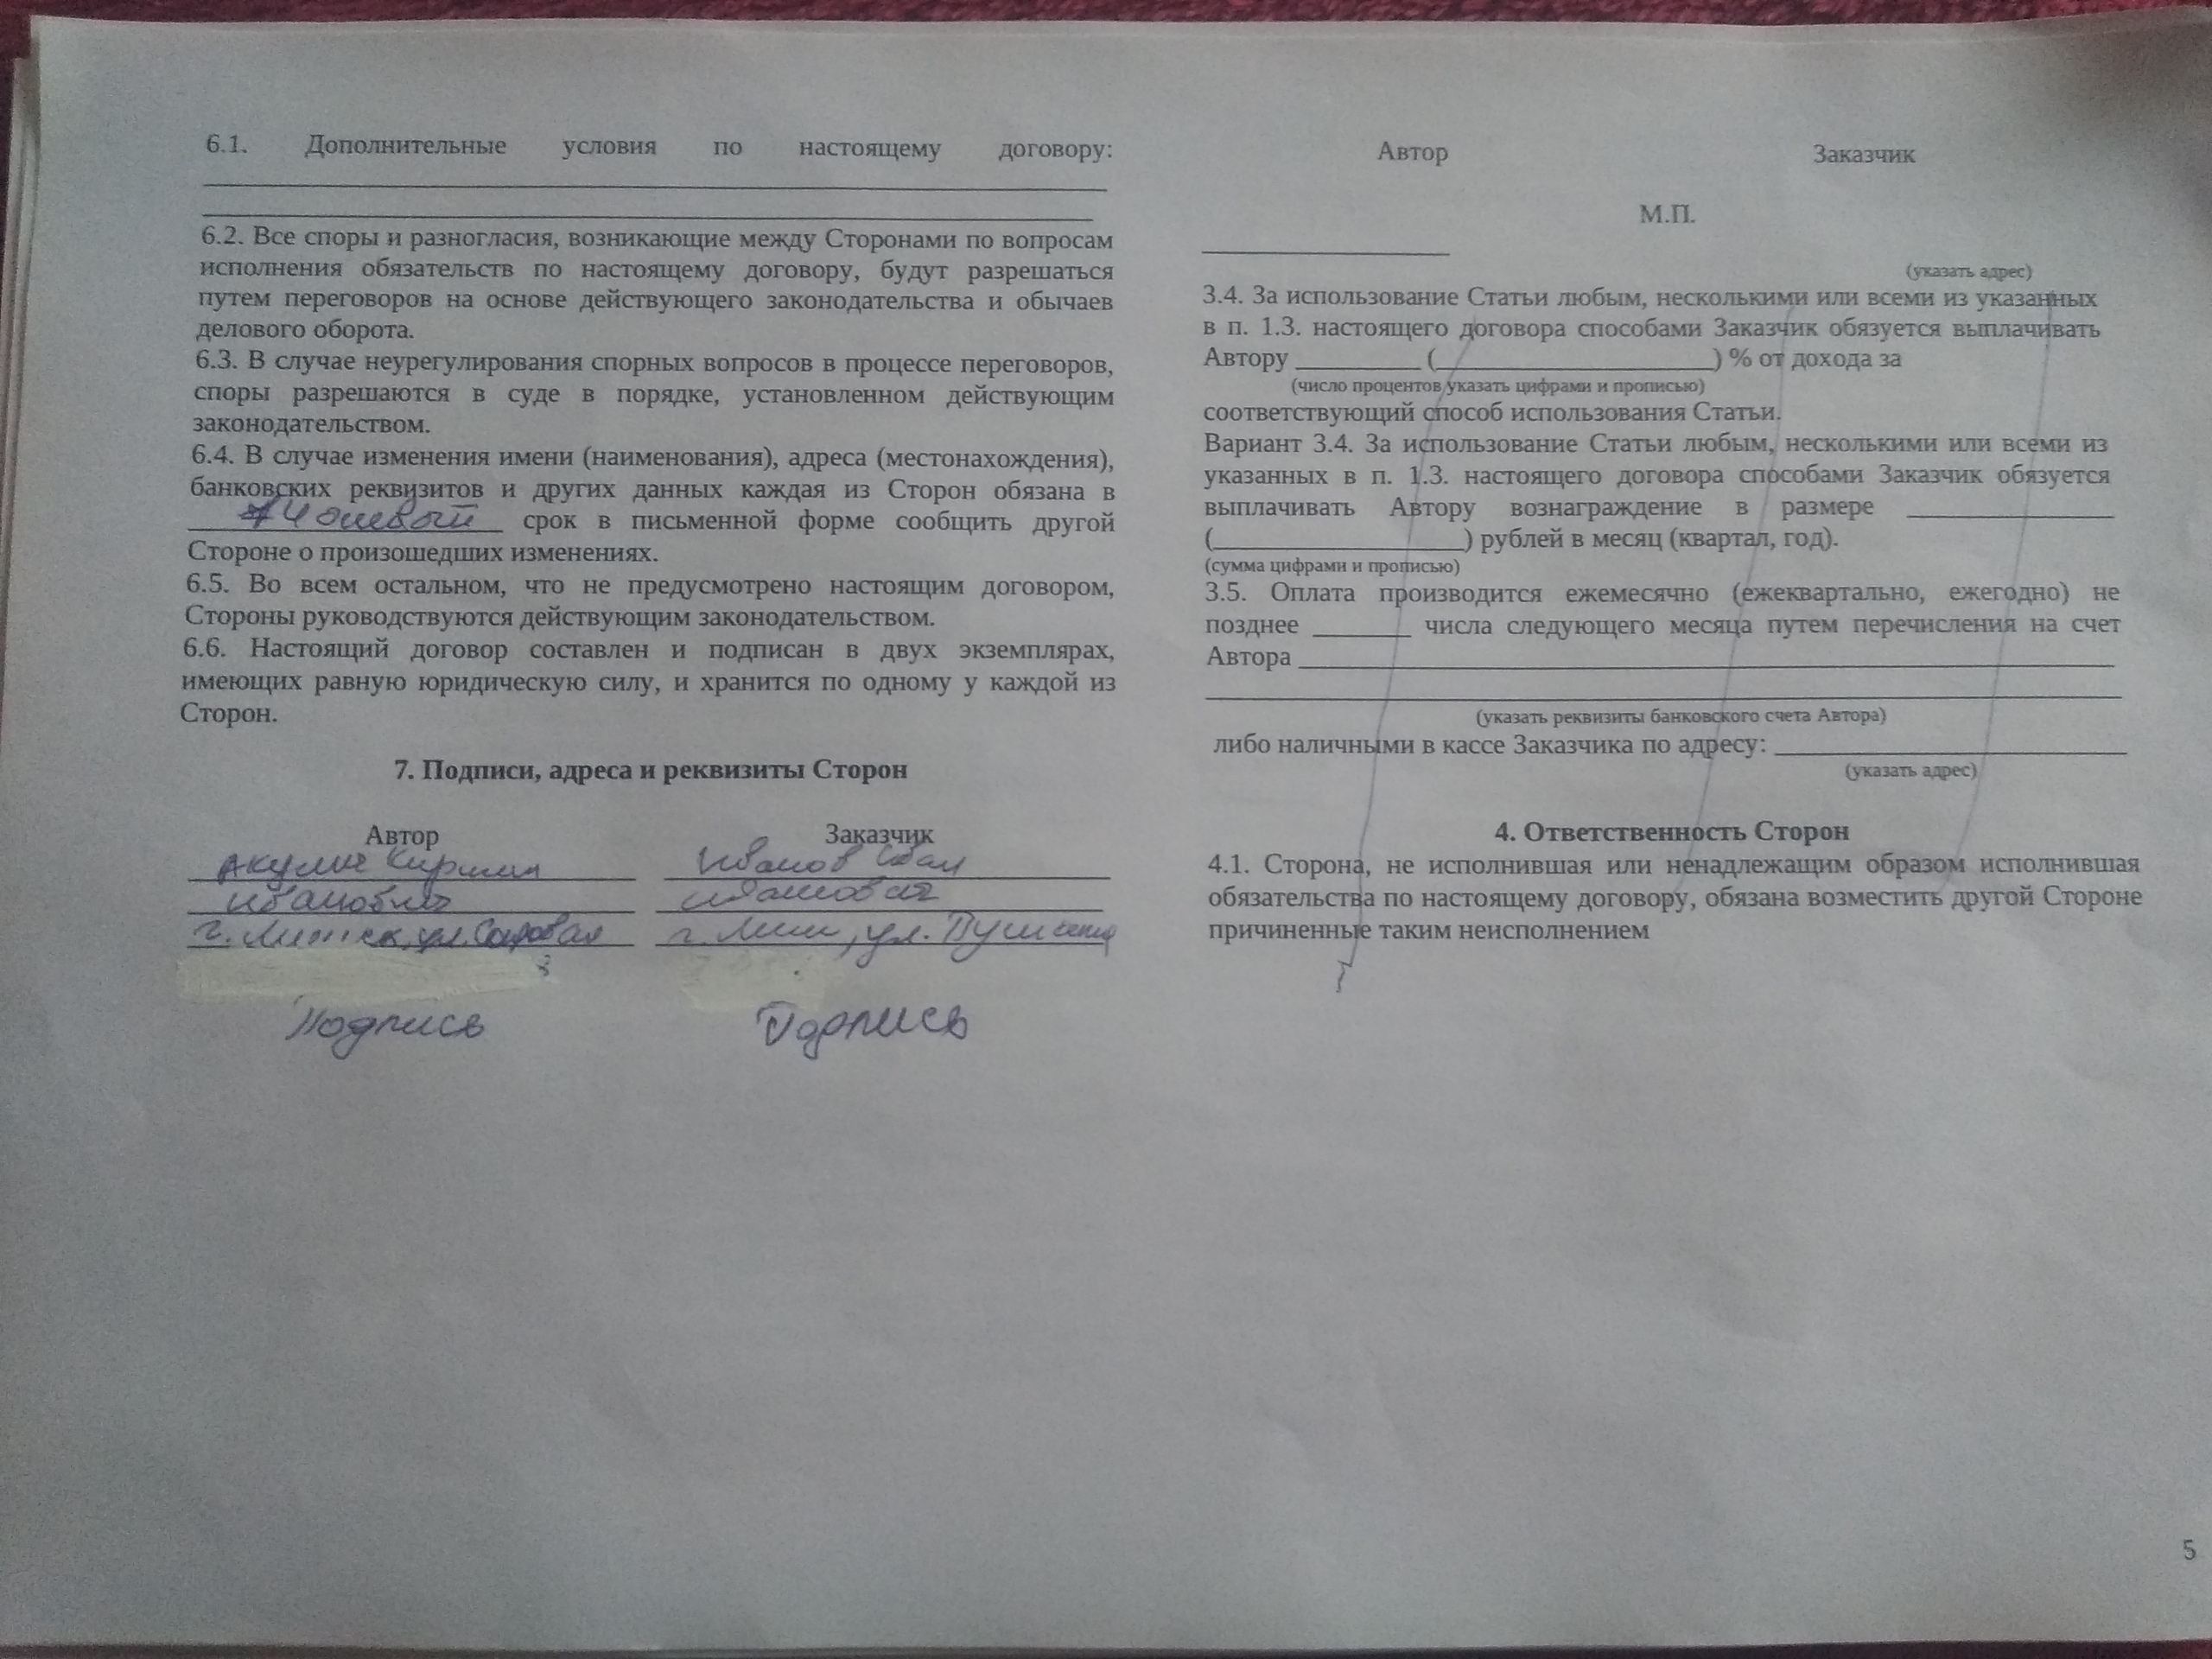 6.1. Дополнительные условия по настоящему договору:
6.2. Все споры и разногласия, возникающие между Сторонами по вопросам
исполнения обязательств по настоящему договору, будут разрешаться
путем переговоров на основе действующего законодательства и обычаев
делового оборота.
6.3. В случае неурегулирования спорных вопросов в процессе переговоров,
споры разрешаются в суде в порядке, установленном действующим
законодательством.
6.4. В случае изменения имени (наименования), адреса (местонахождения),
банковских реквизитов и других данных каждая из Сторон обязана в
срок в письменной форме сообщить другой
Стороне о произошедших изменениях.
6.5. Во всем остальном, что не предусмотрено настоящим договором,
Стороны руководствуются действующим законодательством.
6.6. Настоящий договор составлен и подписан в двух экземплярах,
имеющих равную юридическую силу, и хранится по одному у каждой из
Сторон.
7. Подписи, адреса и реквизиты Сторон
Автор Заказчик
Кирилл Иванов Иван
Иванович Иванович
г. ул. Садовая г. ул.
Подпись Подпись
Автор Заказчик
М.П.
(указать адрес)
3.4. За использование Статьи любым, несколькими или всеми из указанных
в п. 1.3. настоящего договора способами Заказчик обязуется выплачивать
Автору ________ (__________________) % от дохода за
(число процентов указать цифрами и прописью)
соответствующий способ использования Статьи.
Вариант 3.4. За использование Статьи любым, несколькими или всеми из
указанных в п. 1.3. настоящего договора способами Заказчик обязуется
выплачивать Автору вознаграждение в размере ______________
(________________) рублей в месяц (квартал, год).
(сумма цифрами и прописью)
3.5. Оплата производится ежемесячно (ежеквартально, ежегодно) не
позднее ______ числа следующего месяца путем перечисления на счет
Автора
(указать реквизиты банковского счета Автора)
либо наличными в кассе Заказчика по адресу:
(указать адрес)
4. Ответственность Сторон
4.1. Сторона, не исполнившая или ненадлежащим образом исполнившая
обязательства по настоящему договору, обязана возместить другой Стороне
причиненные таким неисполнением
5